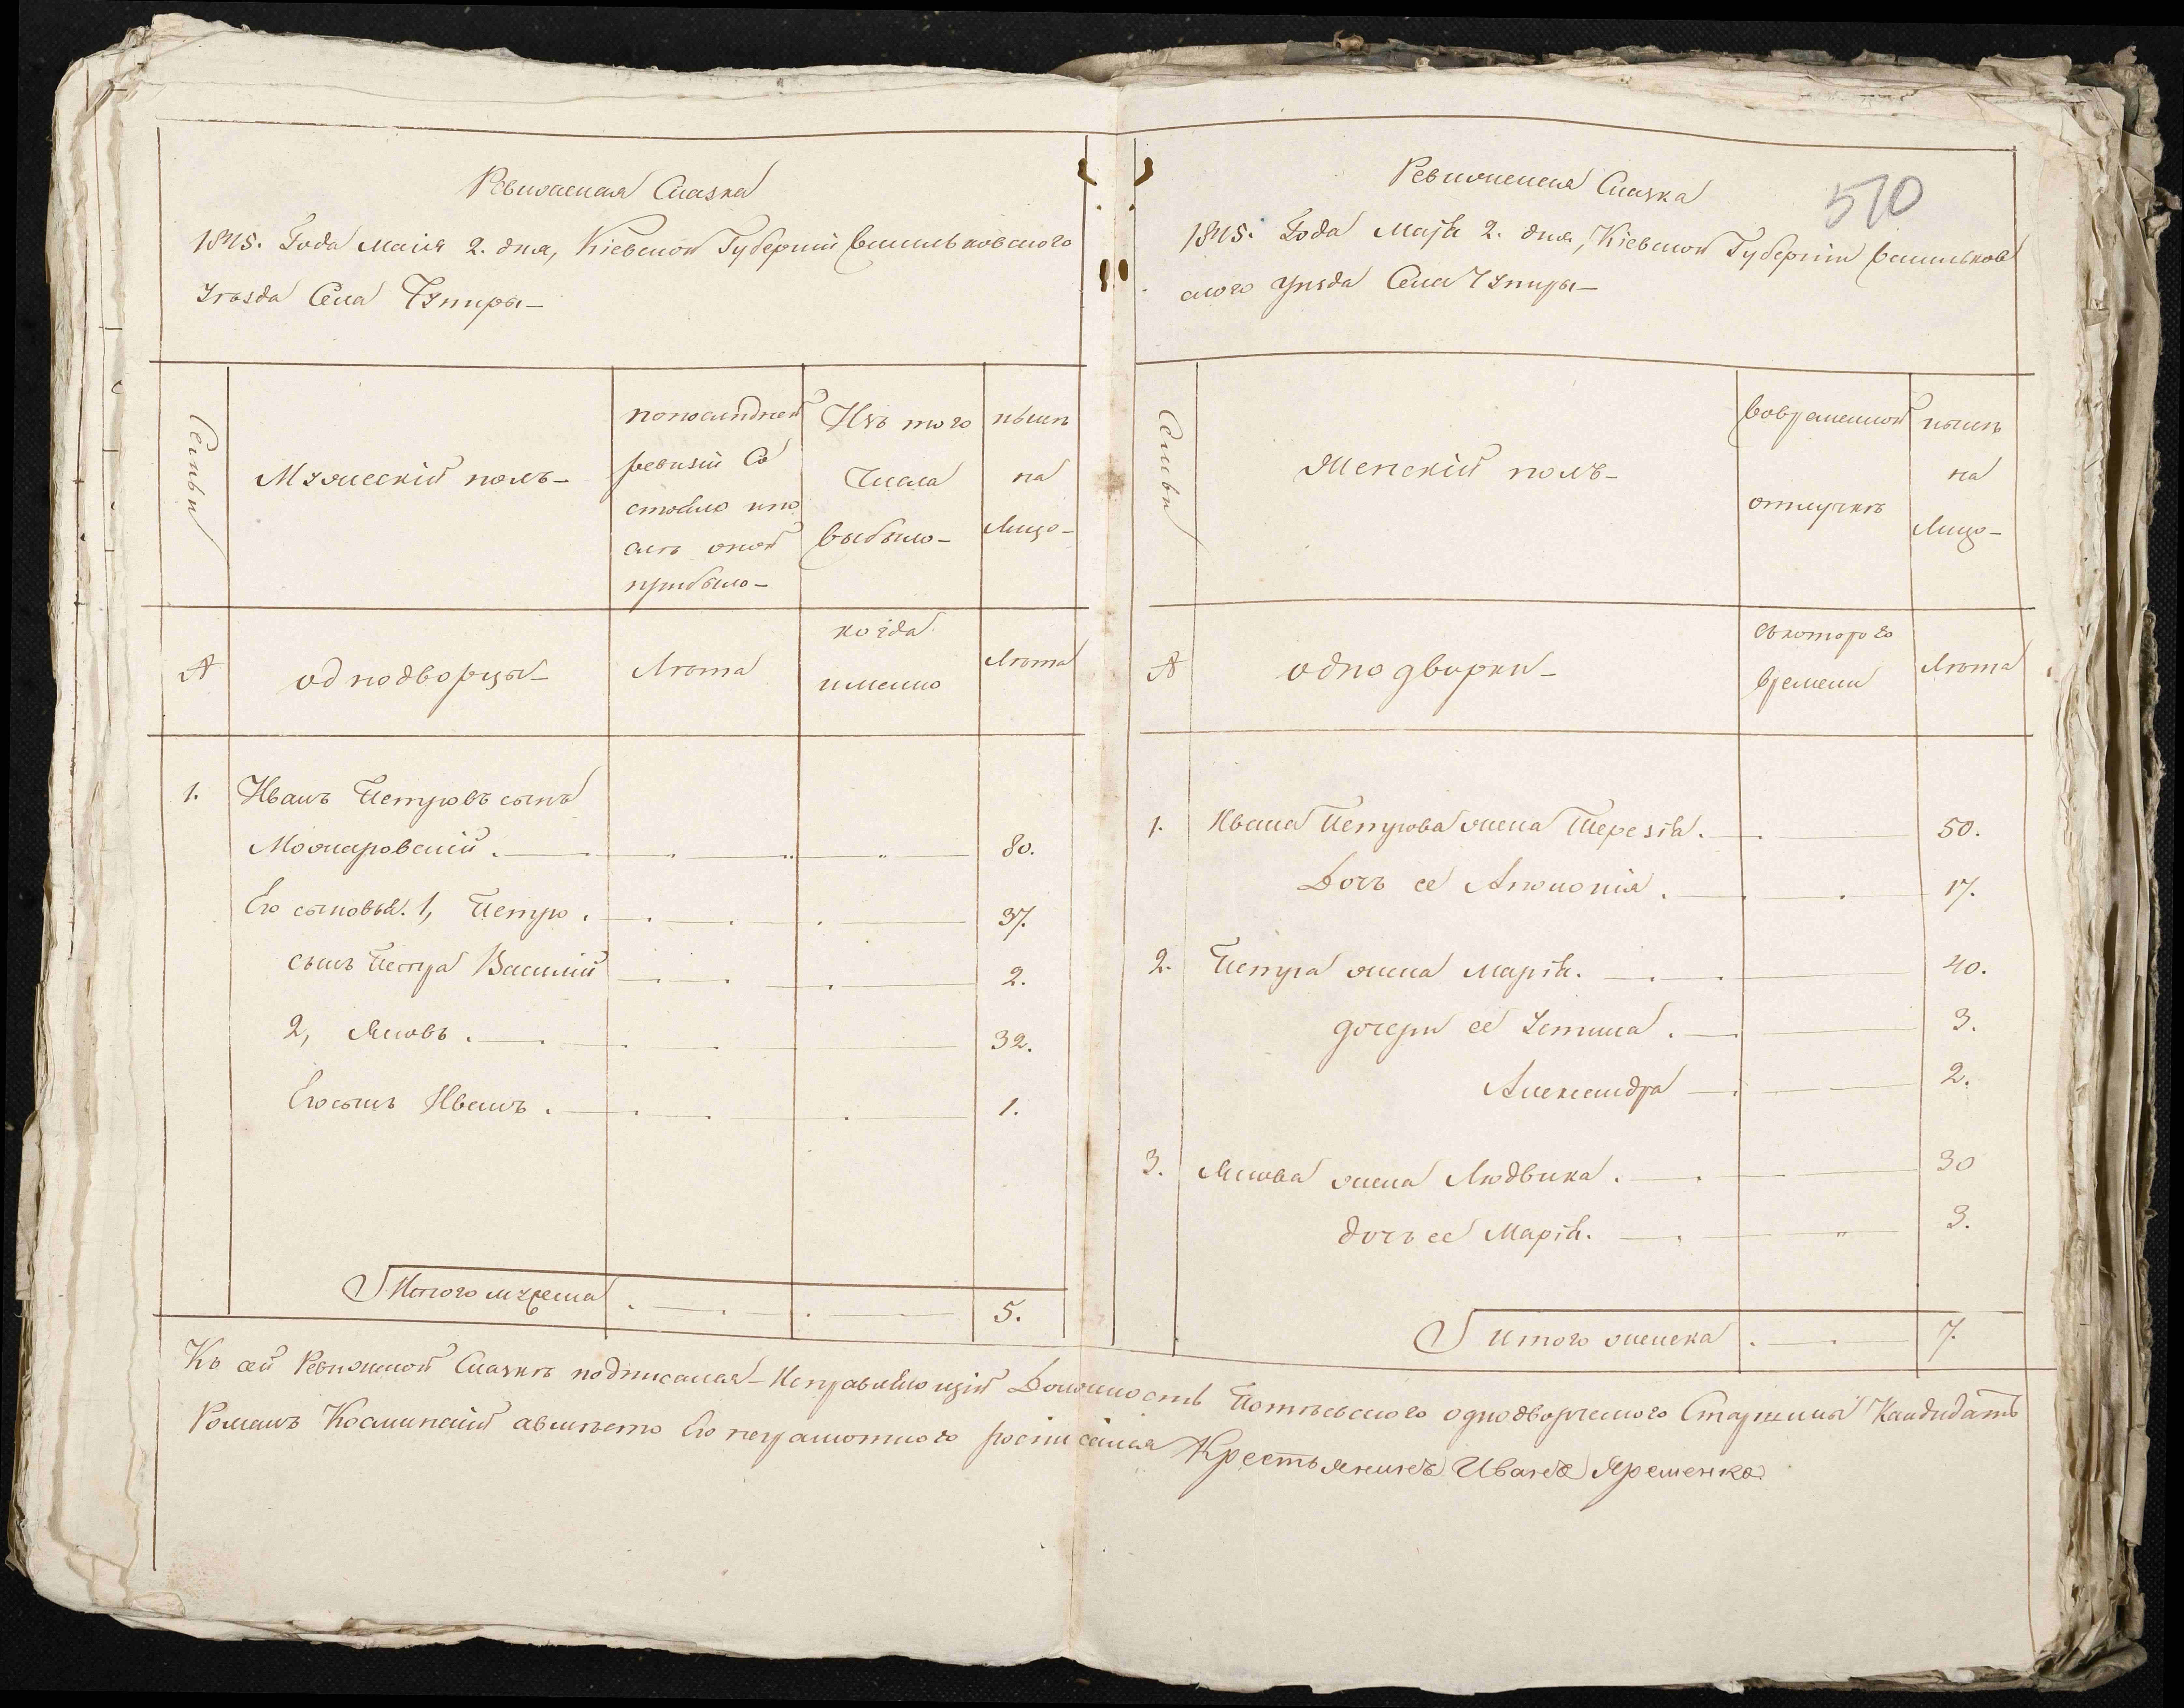 Ревизская Сказка
1845. Года Маія 2. дня, Кіевской Губерніи Васильковского
Уѣзда Села Чупиры
Семьи
Мужескій полъ
попослѣдней
ревизіи Со
стояло ипо
слѣ оной
прибыло
Изъ того
Числа
выбыло
нынѣ
на
Лицо
однодворцы
Лѣта
когда
именно
Лѣта
1. Иванъ Петровъ сынъ
Можаровскій . 80.
Его сыновья. 1, Петро . 37.
сынъ Петра Василій 2.
2, Яковъ . 32.
Егосынъ Иванъ . 1.
Итого мужеска 5.
Ревизская Сказка
510
1845. Года Маія 2. дня, Кіевской Губерніи Васильков
ского уѣзда Села Чупиры
Семьи
Женскій полъ
Вовременной
отлучкѣ
нынѣ
на
Лицо
однодворки
съкоторого
времени
Лѣта
1. Ивана Петрова жена Терезія. 50.
Дочь ее Аполонія . 17.
2. Петра жена Марія. 40.
дочери ее Устина . 3.
Александра 2.
3. Якова жена Людвика . 30
дочь ее Марія. 3.
Итого женска 7.
Къ сей Ревизской Сказкѣ подписался Исправляющій Должность Потіевского однодворческого Старшины Кандидатъ
Романъ авмѣсто Его неграмотного росписался Крестьянинъ Иванъ Яременко